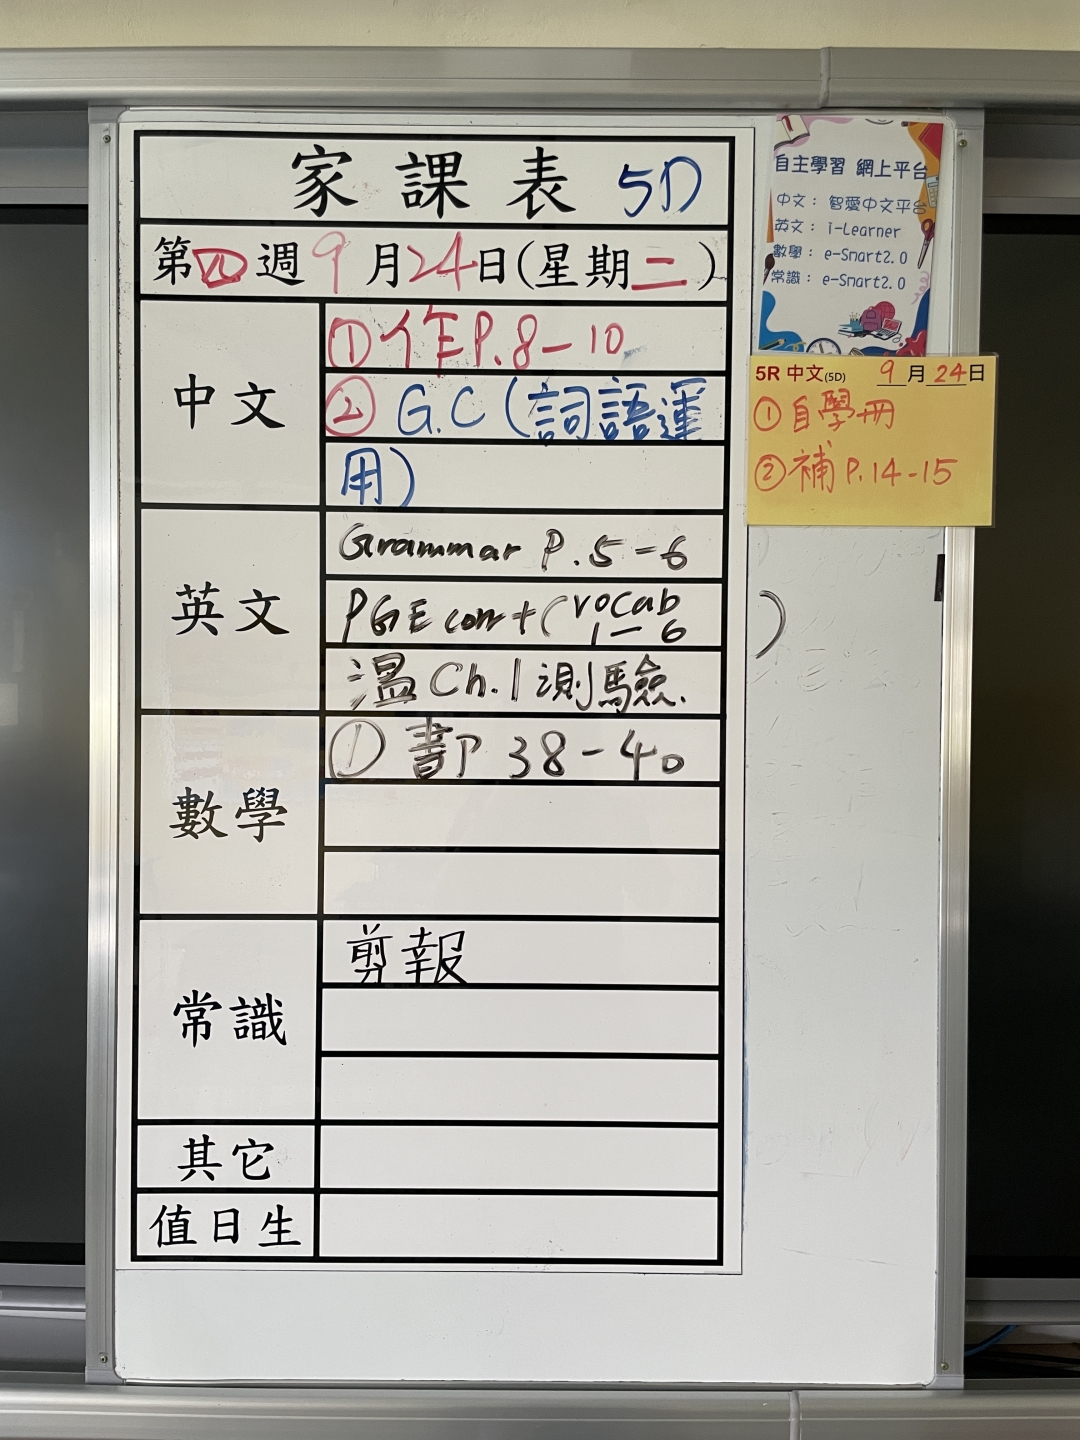 家課表 5D
第四週 9月24日(星期二)
中文
①作P.8-10
②G.C(詞語運
用)
英文
Grammar P.5-6
PGE corr+(vocab
1-6
)
溫Ch.1測驗.
數學
①書P 38-40
常識
剪報
其它
值日生
自主學習 網上平台
中文: 智愛中文平台
英文: i-Learner
數學: e-Smart2.0
常識: e-Smart2.0
5R 中文(5D) 9月24日
①自學冊
②補P.14-15